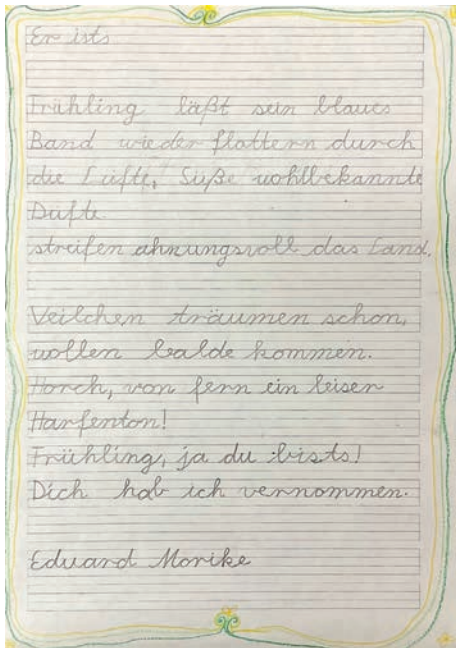 Er ists
Frühling läßt sein blaues
Band wieder flattern durch
die Lüfte, Süße wohlbekannte
Düfte
streifen ahnungsvoll das Land.
Veilchen träumen schon,
wollen balde kommen.
Horch, von fern ein leiser
Harfenton!
Frühling, ja du bists!
Dich hab ich vernommen.
Eduard Morike